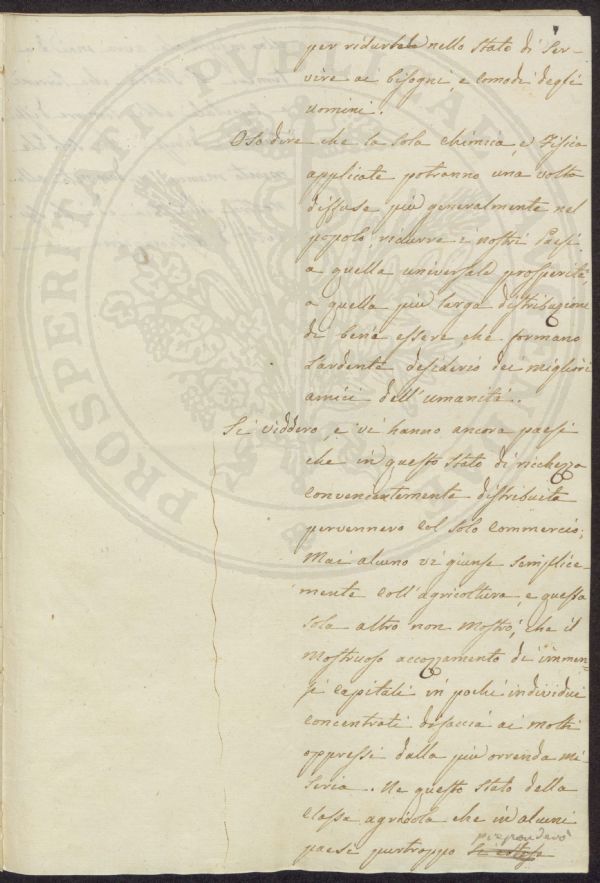 per ridurle nello stato di ser-
vire ai bisogni, e comodi degli
uomini.
Oso dire che la sola chimica, e Fisica
applicate potranno una volta
diffuse più generalmente nel
popolo, ridurre i nostri Paesi
a quella universale prosperità,
a quella più larga distribuzione
di bene essere che formano
l'ardente desiderio dei migliori
amici dell'umanità.
Si viddero, e vi hanno ancora paesi
che in questo stato di ricchezza
convenientemente distribuita
pervennero col solo commercio;
Mai alcuno vi giunse semplice-
mente coll'agricoltura, e questa
sola altro non mostrò, che il
mostruoso accozzamento di immen-
si capitali in pochi individui
concentrati in faccia ai molti
oppressi dalla più orrenda mi
seria. Ne questo stato della
classe agricola che in alcuni
paese purtroppo
PROSPERITATI PVBLICAE